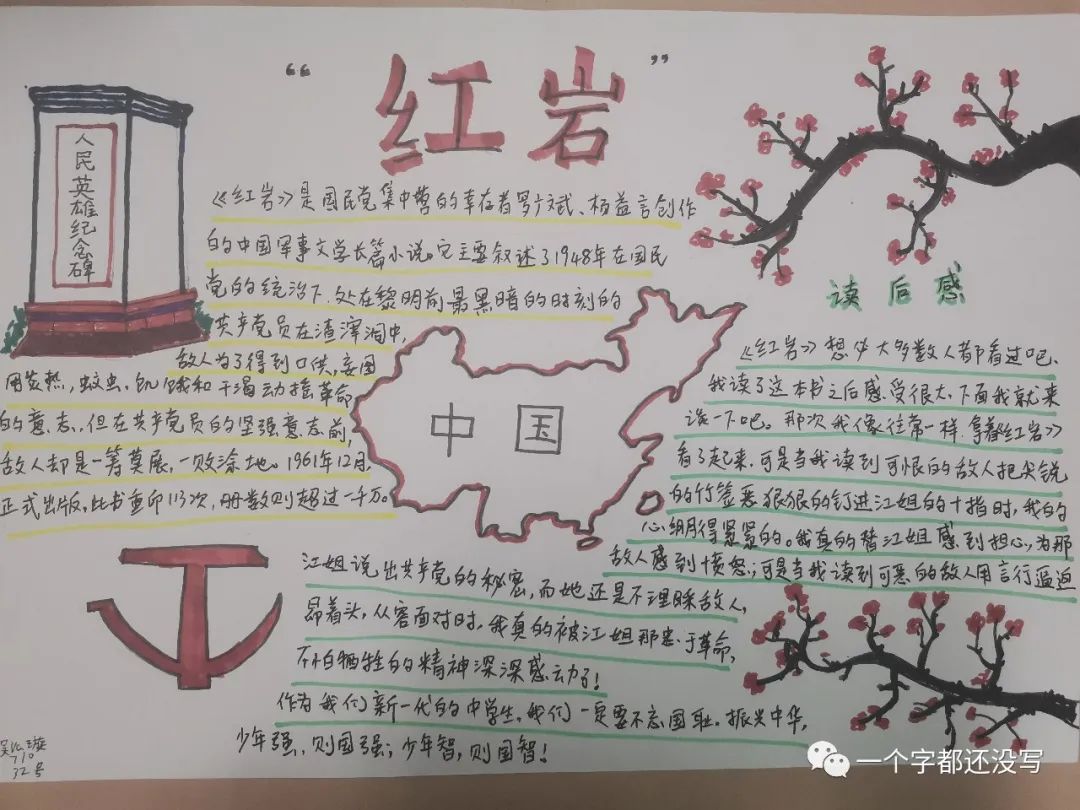 “红岩”
人民英雄纪念碑
《红岩》是国民党集中营的幸存者罗广斌、杨益言创作
的中国军事文学长篇小说。它主要叙述了1948年在国民
党的统治下，处在黎明前最黑暗的时刻的
共产党员在渣滓洞中，
敌人为了得到口供，妄图
用炎热，蚊虫、饥饿和干渴动摇革命
的意志，但在共产党员的坚强意志前，
敌人却是一筹莫展，一败涂地。1961年12月，
正式出版，此书重印113次，册数则超过一千万。
中国
读后感
《红岩》想必大多数人都看过吧。
我读了这本书之后感受很大，下面我就来
谈一下吧。那次我像往常一样，拿着《红岩》
看了起来，可是当我读到可恨的敌人把尖锐
的竹签恶狠狠的钉进江姐的十指时，我的
心绷得紧紧的。我真的替江姐感到担心，为那
敌人感到愤怒；可是当我读到可恶的敌人用言行逼迫
江姐说出共产党的秘密，而她还是不理睬敌人，
昂着头，从容面对时，我真的被江姐那忠于革命，
不怕牺牲的精神深深感动了！
作为我们新一代的中学生，我们一定要不忘国耻。振兴中华，
少年强，则国强；少年智，则国智！
710
32号
一个字都还没写